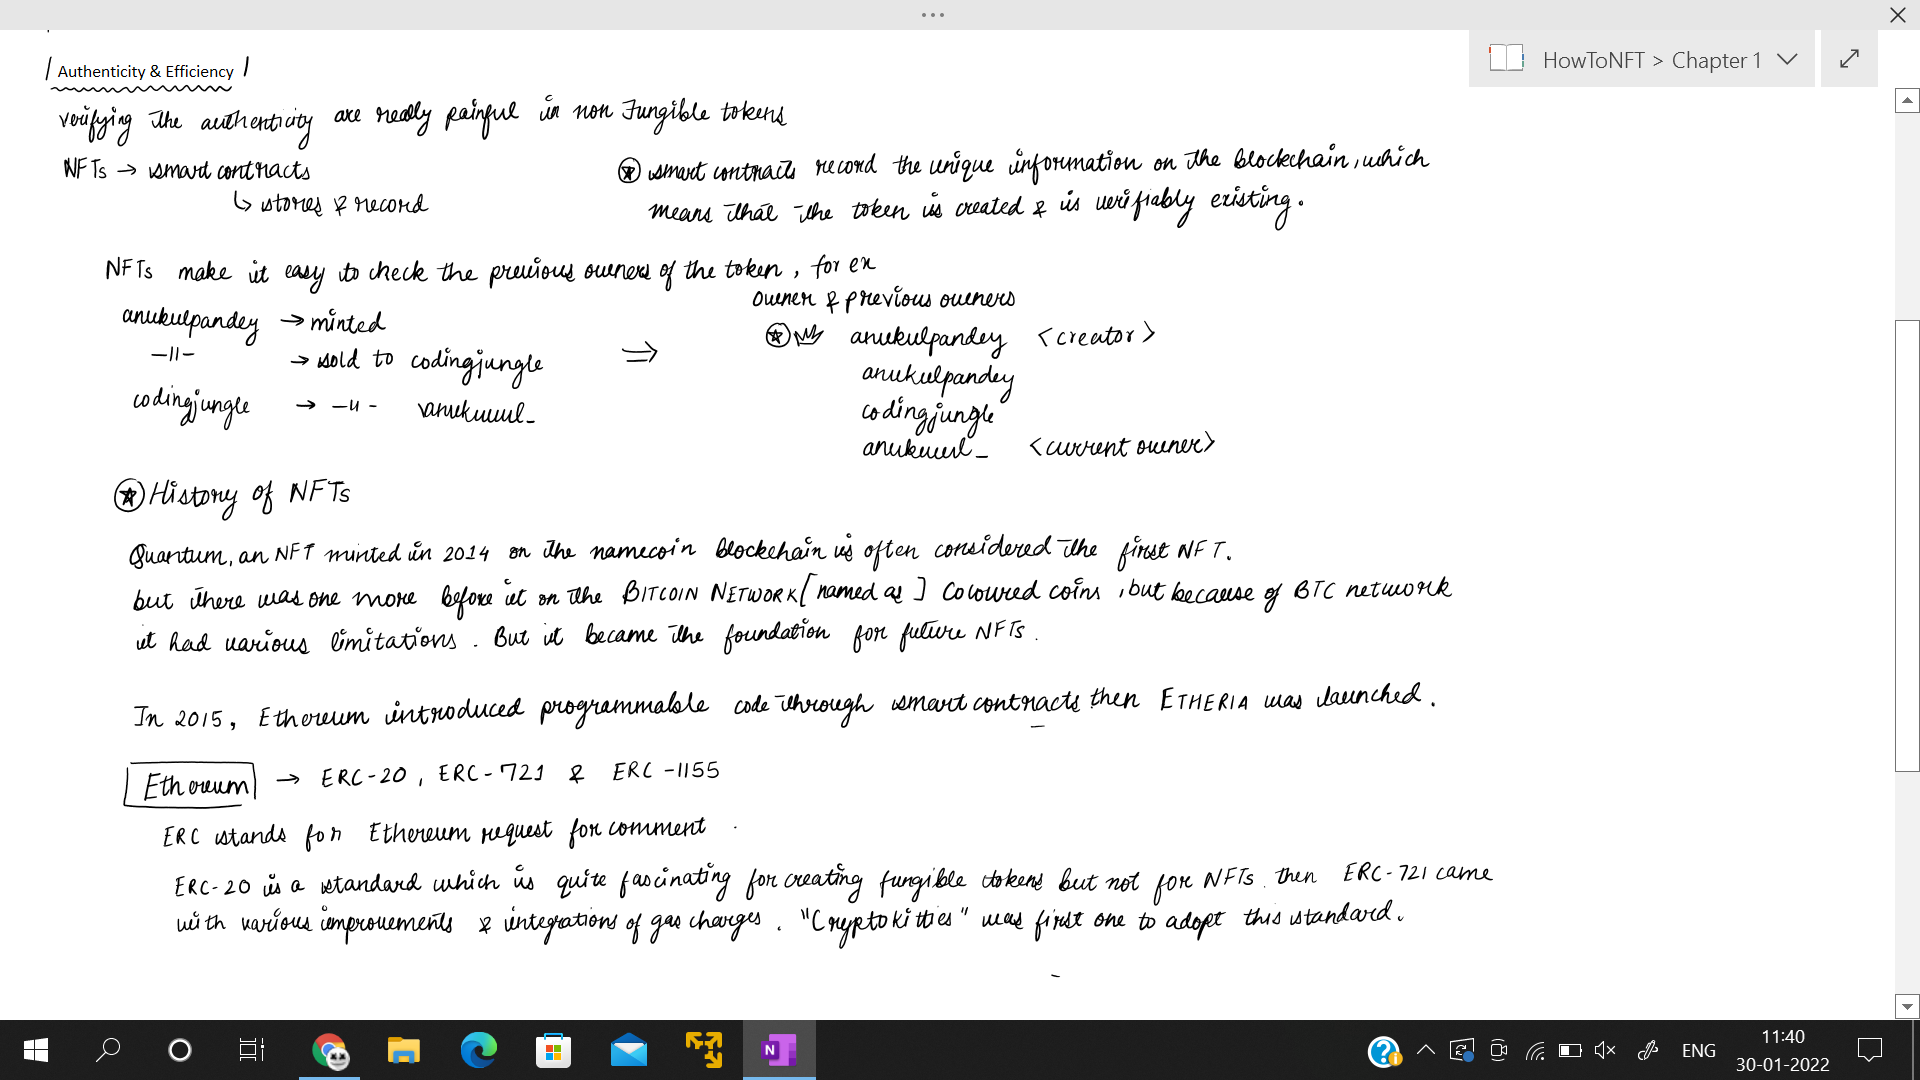 HowToNFT > Chapter 1
Authenticity & Efficiency
verifying the authenticity are really painful in non Fungible tokens
NFTs → smart contracts
↳ stores & record
smart contracts record the unique information on the blockchain, which
means that the token is created & is verifiably existing.
NFTs make it easy to check the previous owners of the token, for ex
anukulpandey → minted
-11- → sold to codingjungle
codingjungle → -11- anukuuul_
⇒
Owner & previous owners
anukulpandey <creator>
anukulpandey
codingjungle
anukuuul_ <current owner>
History of NFTs
Quantum, an NFT minted in 2014 on the namecoin blockchain is often considered the first NFT.
but there was one more before it on the BITCOIN NETWORK [named as] Coloured coins, but because of BTC network
it had various limitations. But it became the foundation for future NFTs.
In 2015, Ethereum introduced programmable code through smart contracts then ETHERIA was launched.
Ethereum → ERC-20, ERC-721 & ERC-1155
ERC stands for Ethereum request for comment.
ERC-20 is a standard which is quite fascinating for creating fungible tokens but not for NFTs. then ERC-721 came
with various improvements & integrations of gas charges. "Cryptokitties" was first one to adopt this standard.
ENG
11:40
30-01-2022